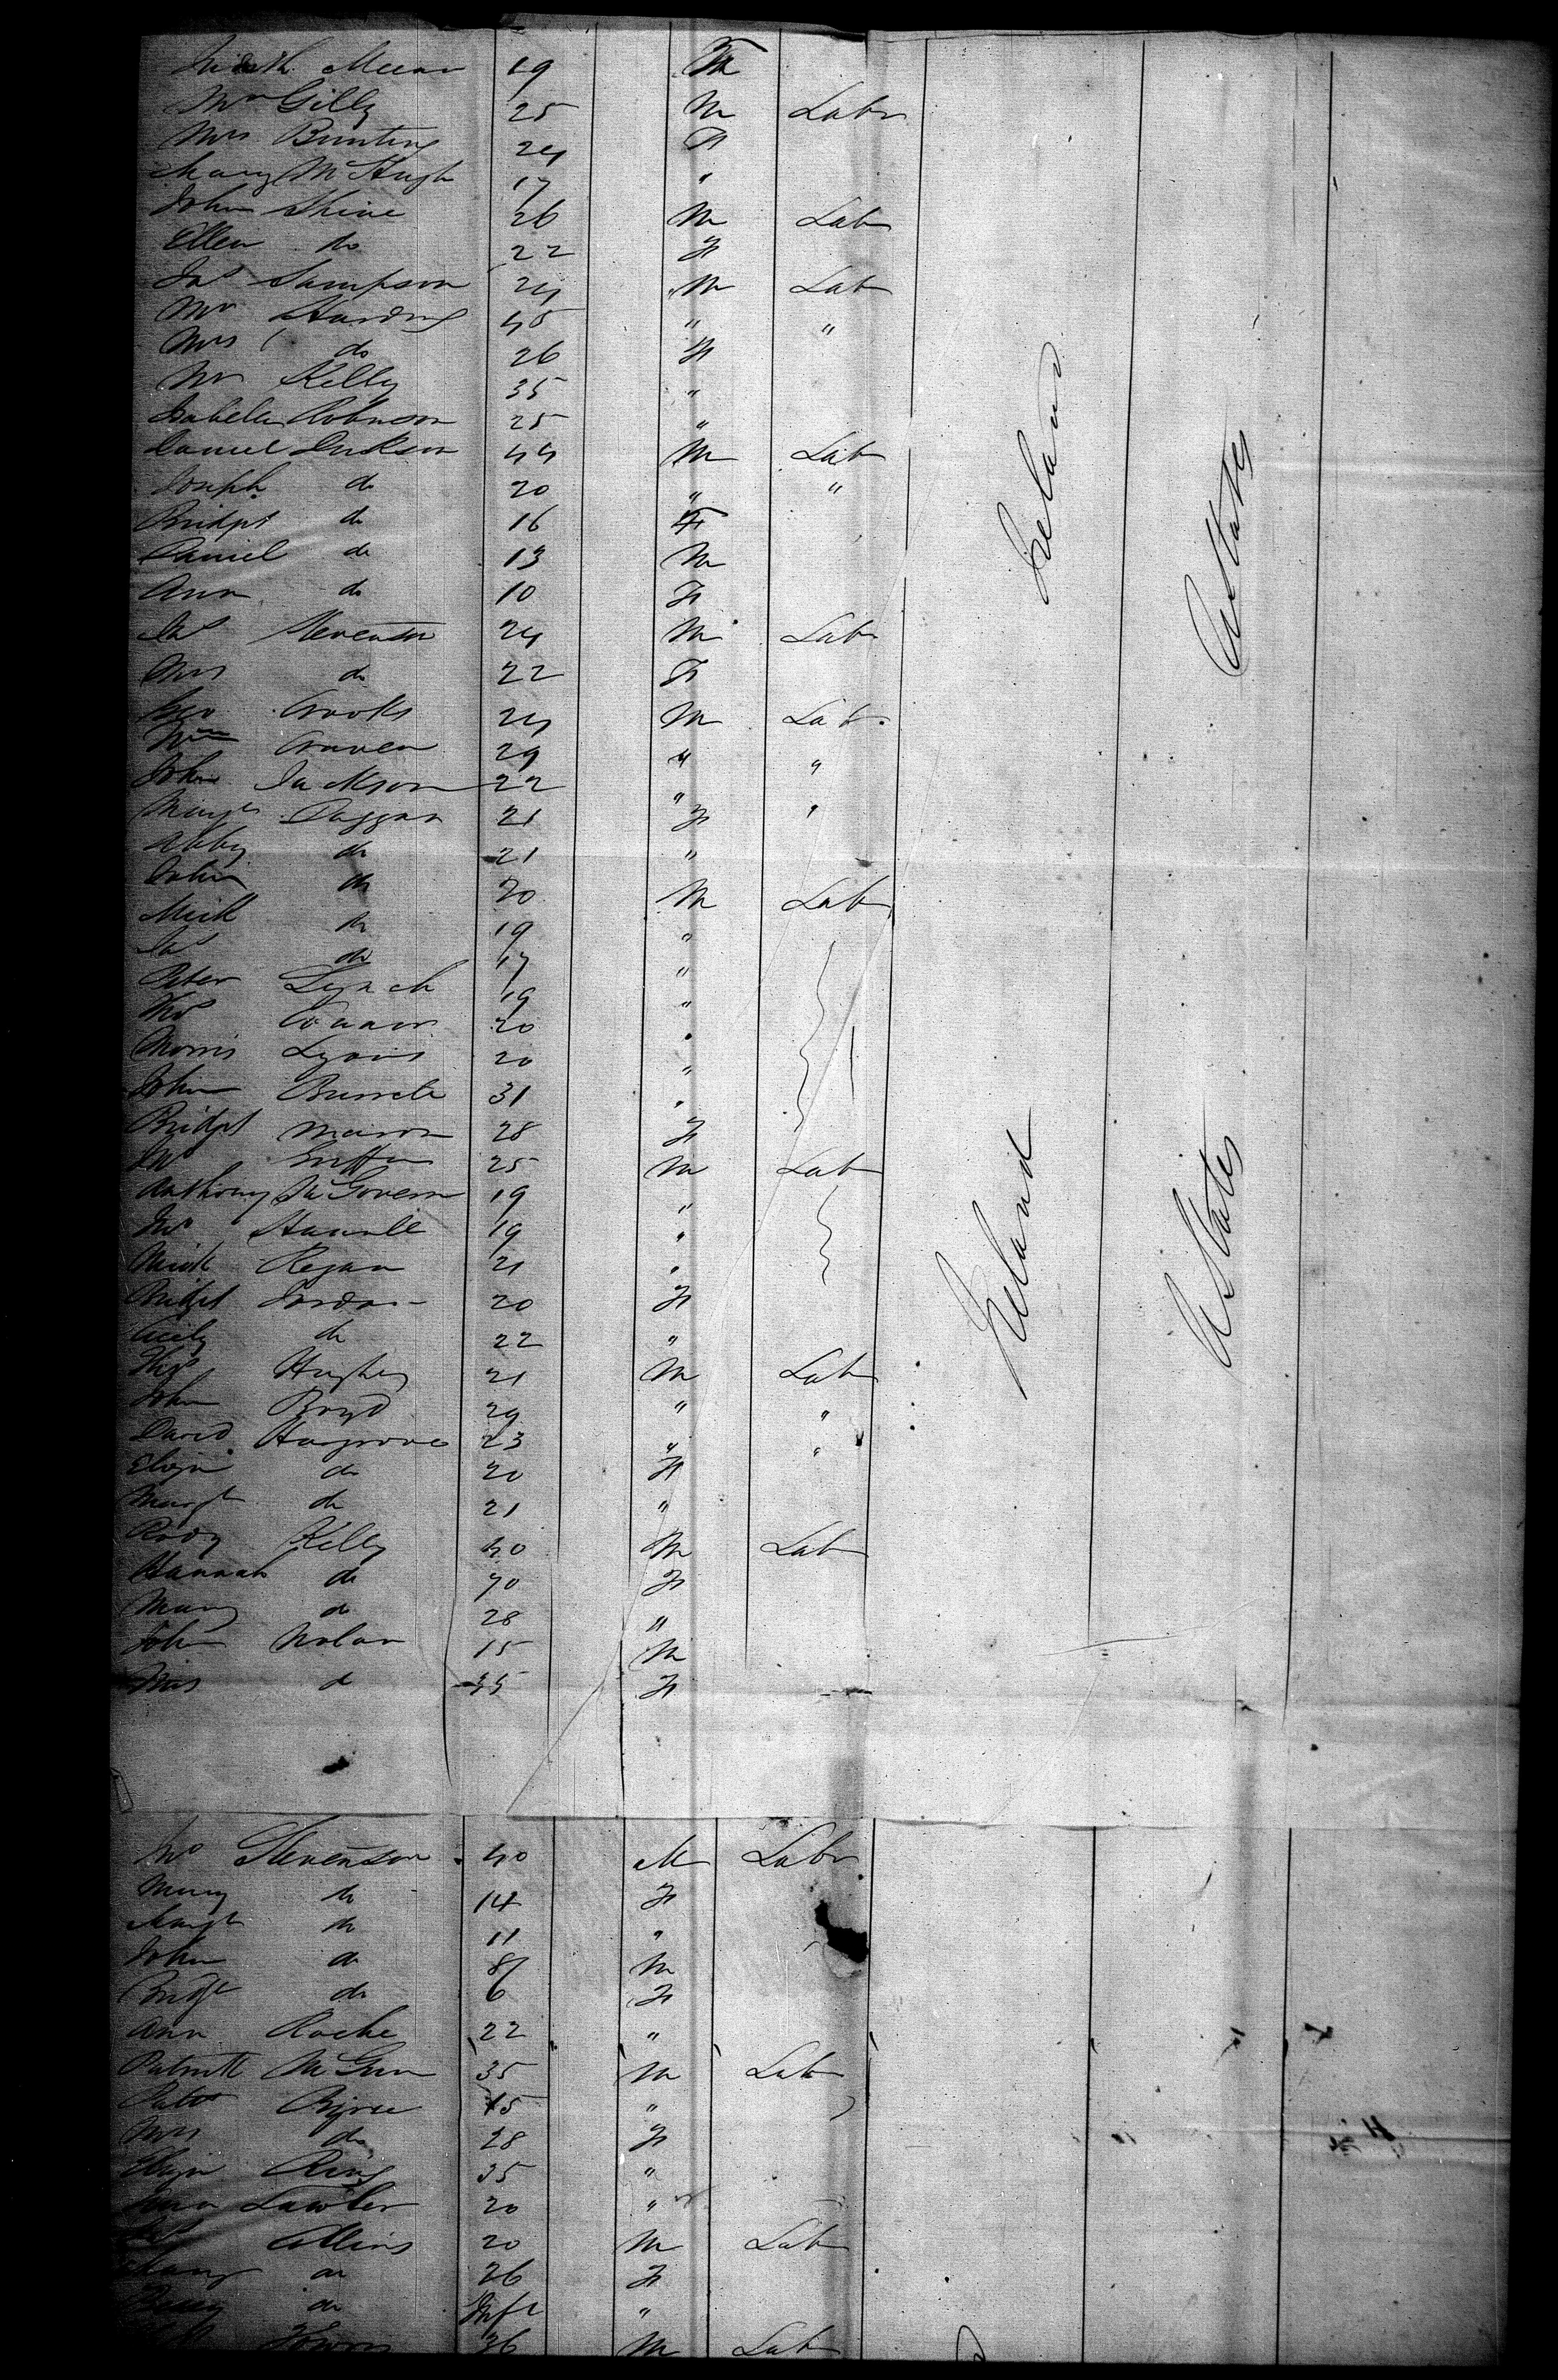 Judith 19 F
Mr Gilly 25 M Labr
Mrs Bunting 24 F
Mary McHugh 17 "
John Shine 26 M Lab
Ellen do 22 F
Jas Sampson 24 M Lab
Mr Harding 45 " "
Mrs do 26 F
Mr Kelly 35 "
Isabella Robinson 25 "
Daniel 44 M Lab
Joseph do 20 " "
Bridgt do 16 F
Daniel do 13 M
Ann do 10 F
Jas Stevenson 24 M Lab
Mrs do 22 F
Geo Crooks 24 M Lab
Wm Craven 29 " "
John Jackson 22 " "
Margt Duggan 21 F
Abby do 21 "
John do 20 M Lab
Mick do 19 "
Jas do 17 "
Peter Lynch 19 "
Thos 20 "
Morris Lyons 20 "
John 31 "
Bridgt 28 F
Jno Griffin 25 M Lab
Anthony McGovern 19 "
Jno 19 "
Mick Regan 21 "
Bridgt Jordan 20 F
Cicily do 22 "
Thos Hughes 21 M Lab
John Boyd 29 " "
David Hargrove 23 " "
Eliza do 20 F
Margt do 21 "
Rody Kelly 40 M Lab
Hannah do 70 F
Mary do 28 "
John Nolan 15 M
Mrs do 35 F
Ireland
U States
Ireland
U States
Jno Stevenson 40 M Labr
Mary do 14 F
Margt do 11 "
John do 8 M
Bridgt do 6 F
Ann Roche 22 "
Patrick 35 M Lab
Patt 15 "
Mrs do 28 F
Eliza Ring 35 "
Ann Lawler 20 "
Collins 20 M Lab
Mary do 26 F
do Inft "
36 M Lab